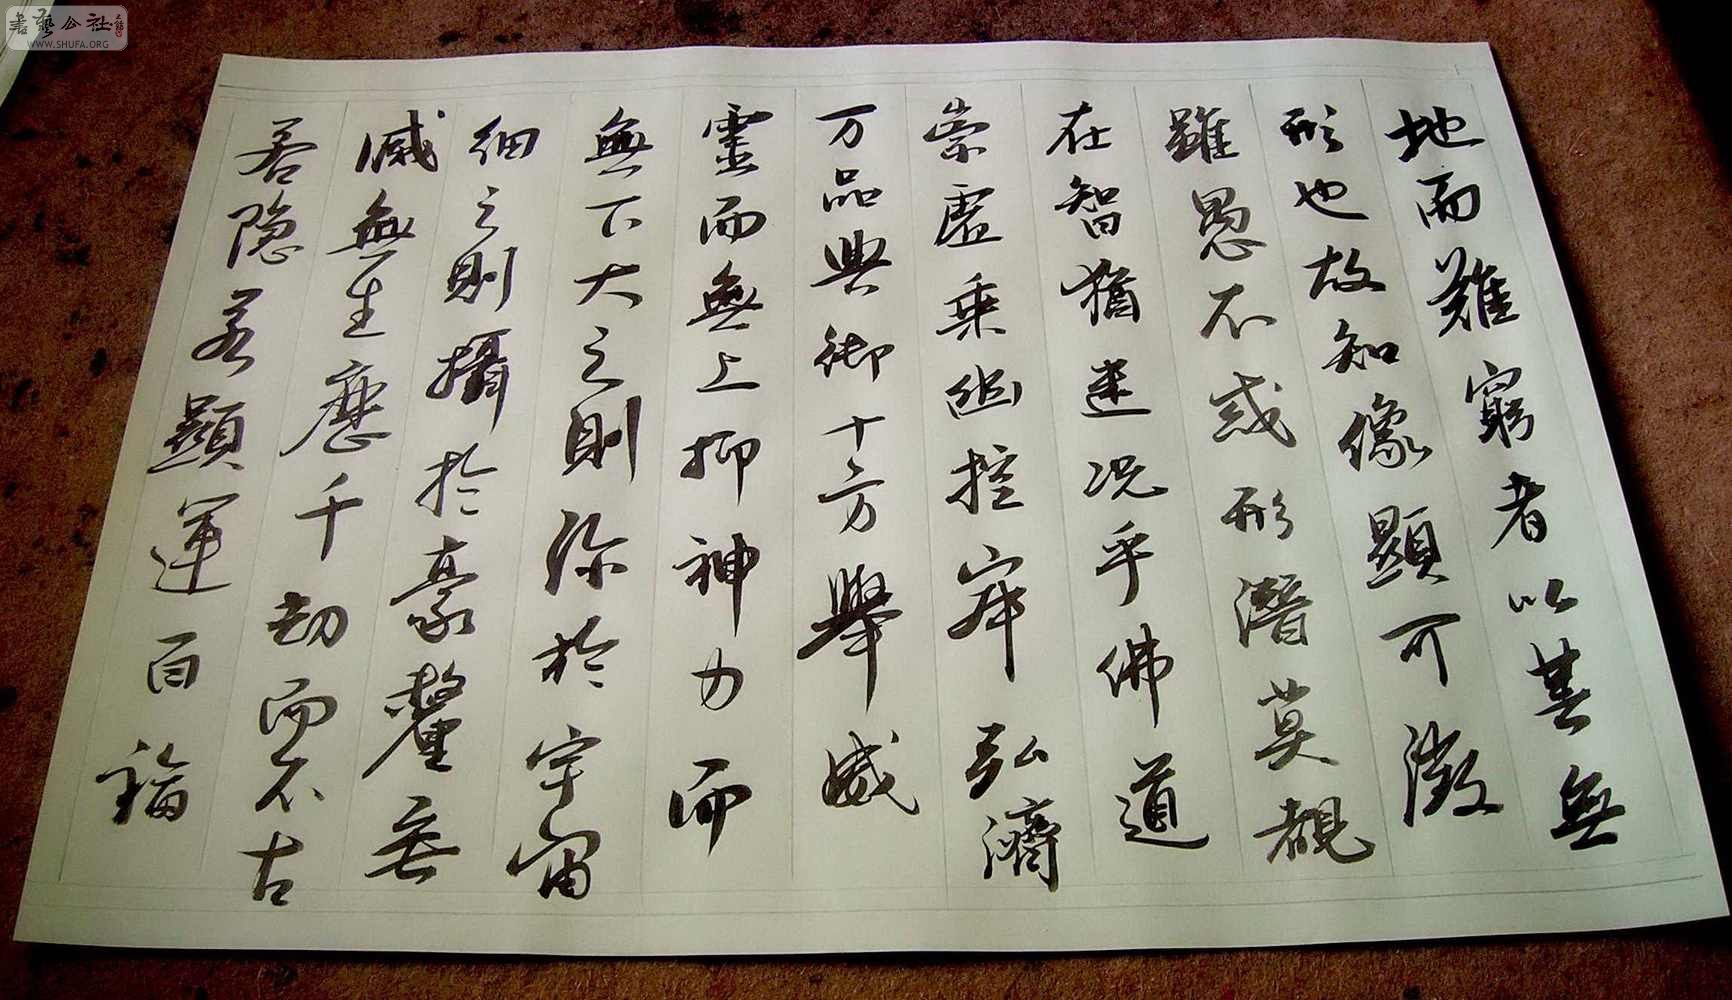 書藝公社
WWW.SHUFA.ORG
地而難窮者以其無
形也故知像顯可徵
雖愚不惑形潛莫覩
在智猶迷况乎佛道
崇虛乘幽控寂弘濟
万品典御十方舉威
靈而無上抑神力而
無下大之則弥於宇宙
細之則攝於豪釐無
滅無生歷千劫而不古
若隱若顯運百福